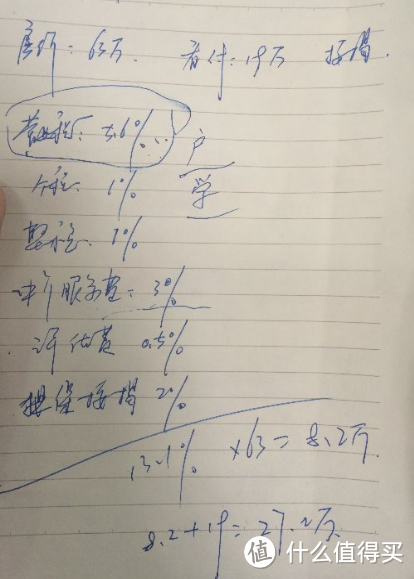 房价：63万. 首付：19万 按揭.
营业税：5.6% ... 户
个税： 1% 学
契税： 1%
中介服务费＝ 3%
评估费 0.5%
担保按揭 2%
13.1% ×63＝8.2万
8.2＋19＝27.2万
值 什么值得买